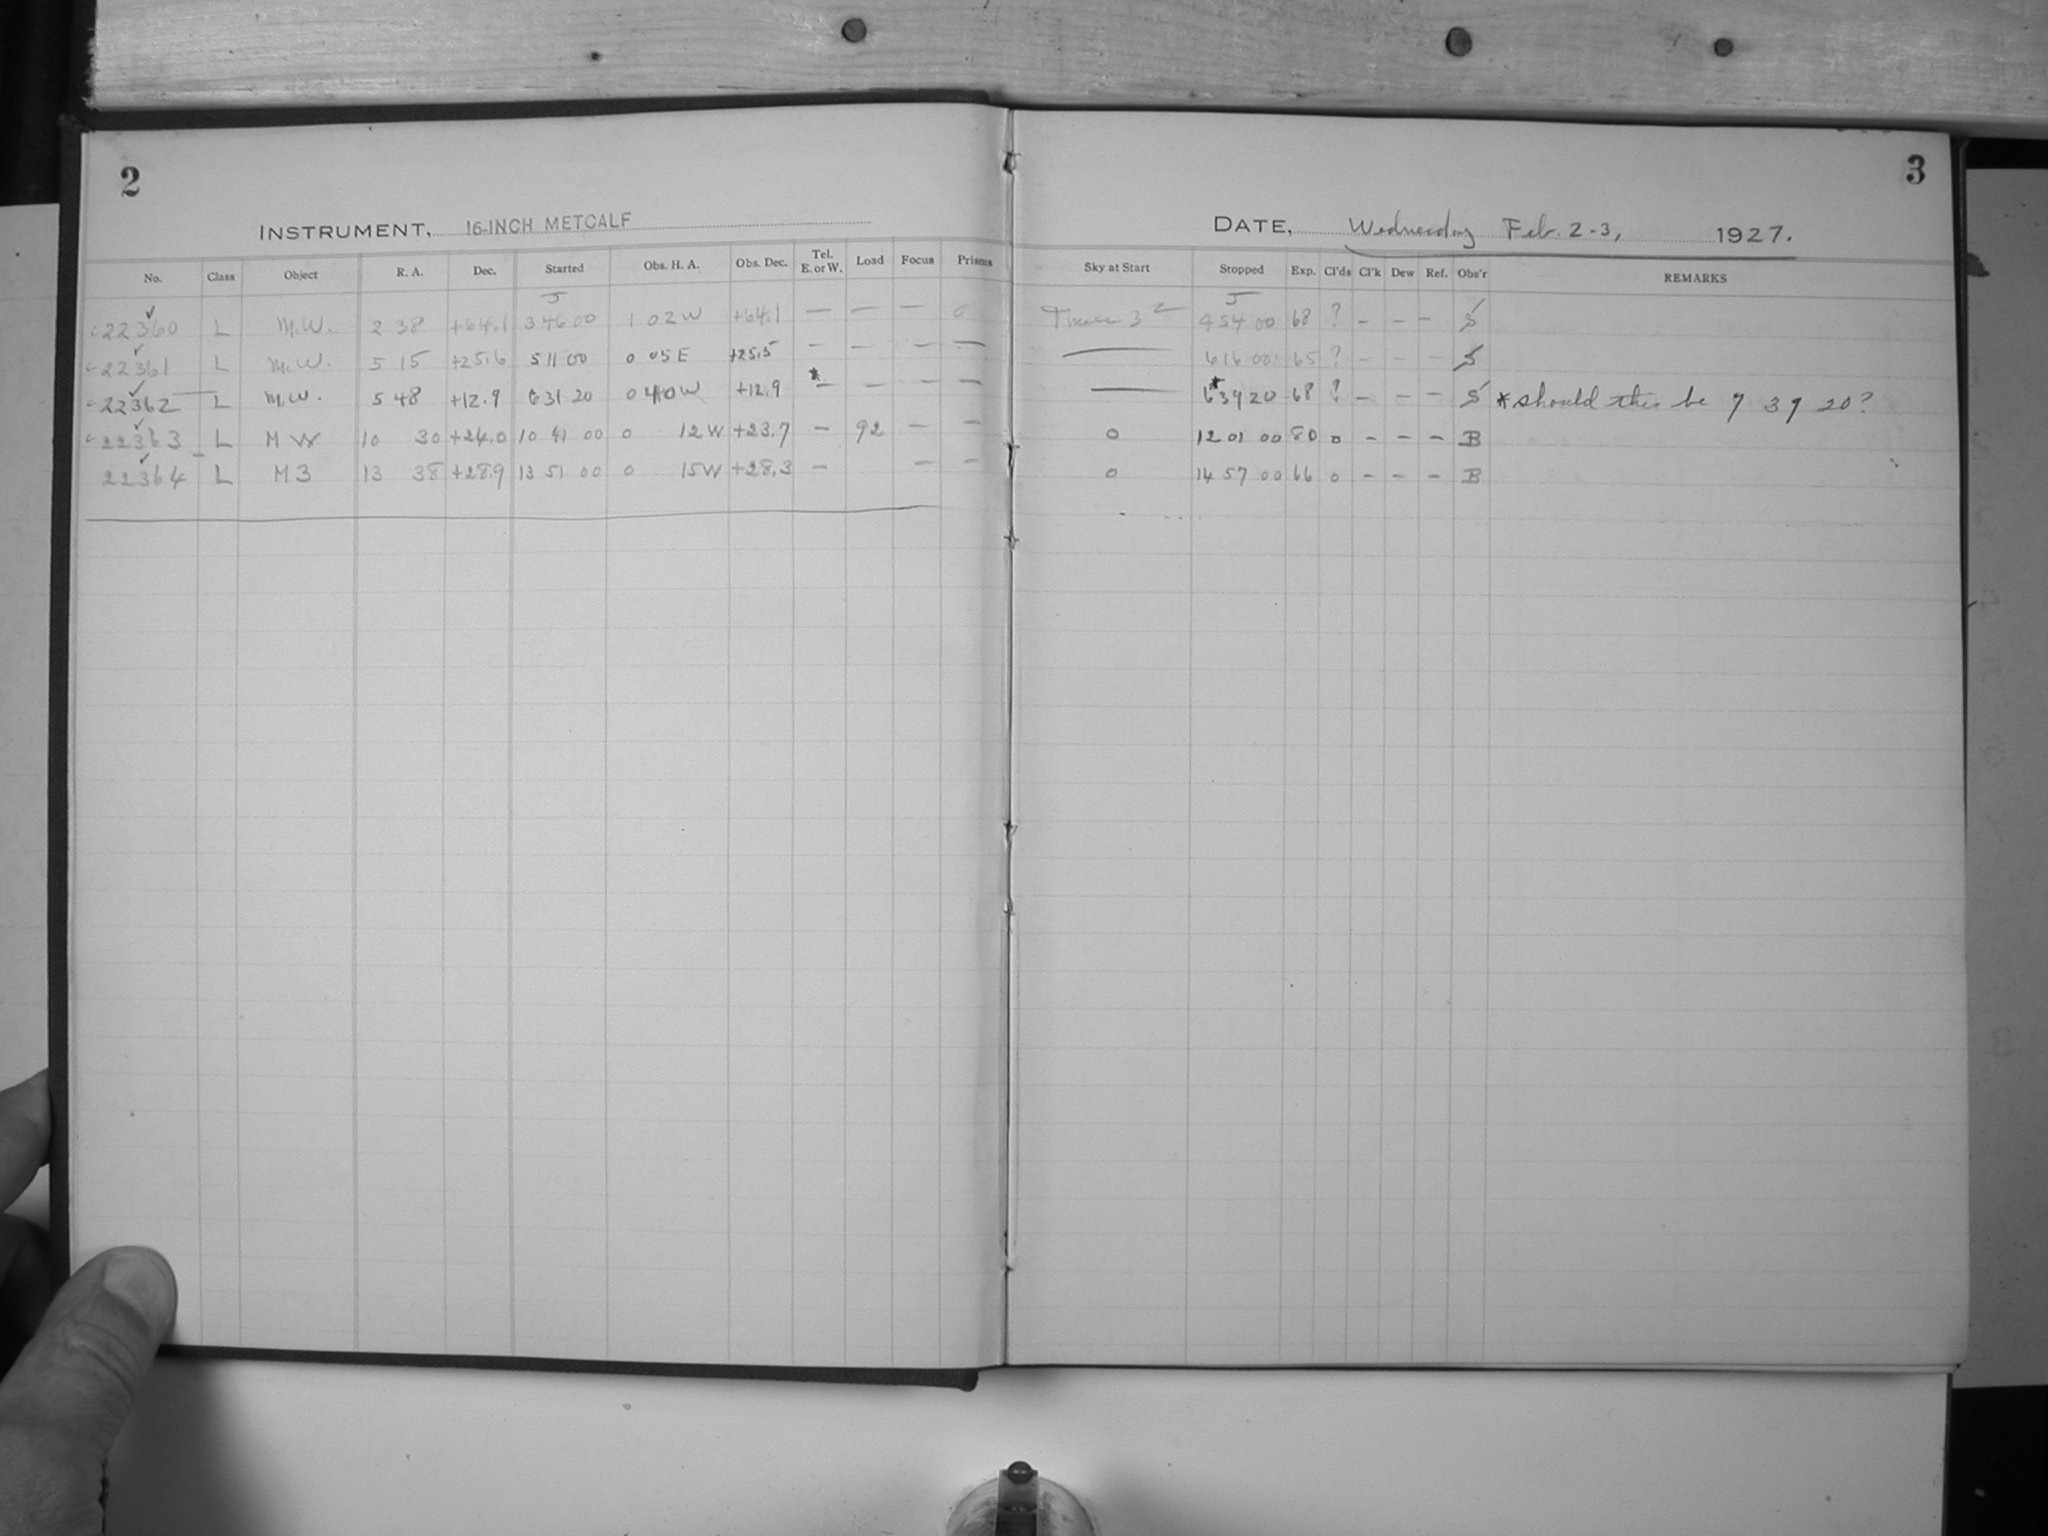 2
INSTRUMENT, 16-INCH METCALF
No. Class Object R. A. Dec. Started Obs. H. A. Obs. Dec. Tel. E. or W. Load Focus Prisms
22360 L M.W. 2 38 +64.1 3 46 00 1 02 W +64.1 — — —
22361 L M.W. 5 15 +25.6 5 11 00 0 05 E +25.5 — — — —
22362 L M.W. 5 48 +12.9 6 31 20 0 40 W +12.9 *— — — —
22363 L M W 10 30 +24.0 10 41 00 0 12 W +23.7 — 92 — —
22364 L M 3 13 38 +28.9 13 51 00 0 15 W +28.3 — — —
3
DATE, Wednesday Feb. 2-3, 1927.
Sky at Start Stopped Exp. Cl'ds Cl'k Dew Ref. Obs'r REMARKS
3 2 4 54 00 68 ? — — — S
—— 6 16 00 65 ? — — — S
—— *6 39 20 68 ? — — — S * should this be 7 39 20?
0 12 01 00 80 0 — — — B
0 14 57 00 66 0 — — — B